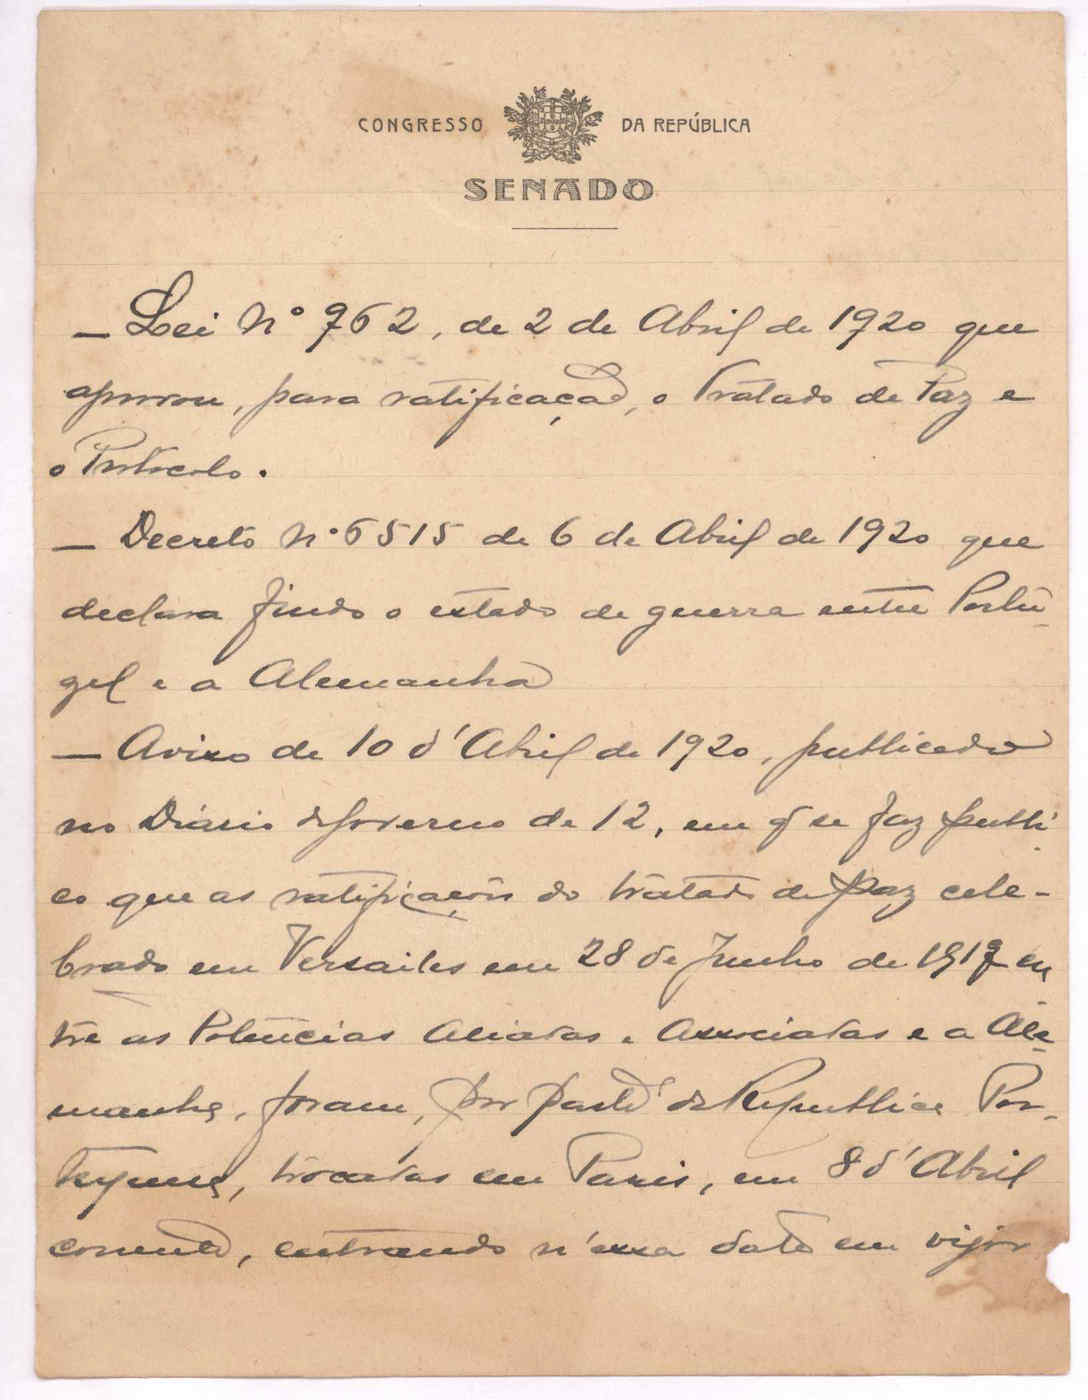 CONGRESSO DA REPÚBLICA
SENADO
— Lei Nº 762, de 2 de Abril de 1920 que
aprovou, para ratificação, o Tratado de Paz e
o Protocolo.
— Decreto nº 6515 de 6 de Abril de 1920 que
declara findo o estado de guerra entre Portu-
gal e a Alemanha
— Aviso de 10 d'Abril de 1920, publicado
no Diário do Governo de 12, em q se faz publi-
co que as ratificações do tratado de paz cele-
brado em Versailes em 28 de Junho de 1919 en
tre as Potências Aliadas e Associadas e a Ale-
manha, foram, por parte da Republica Por-
tugueza, trocadas em Paris, em 8 d'Abril
corrente, entrando n'essa data em vigor